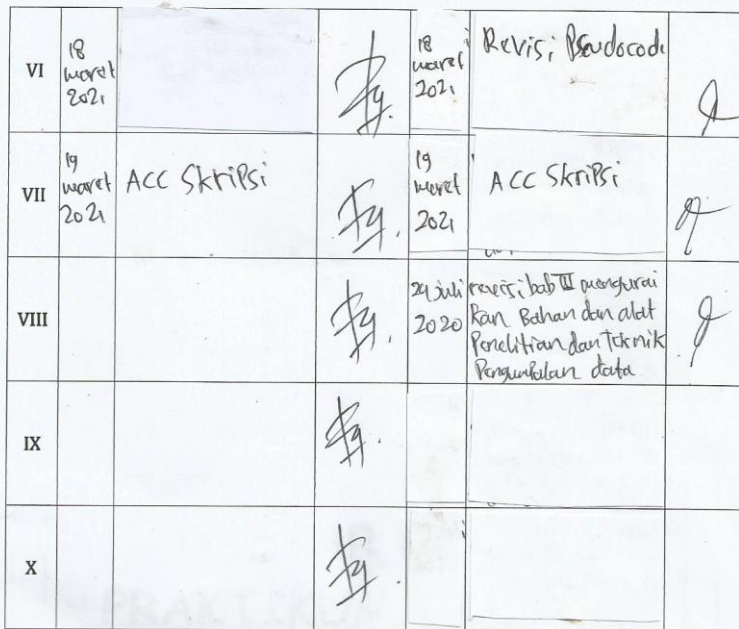 VI
18
maret
2021
18
maret
2021
Revisi Pseudocode
VII
19
maret
2021
ACC Skripsi
19
maret
2021
ACC Skripsi
VIII
29 juli
2020
revisi bab III mengurai
kan Bahan dan alat
Penelitian dan Teknik
Pengumpulan data
IX
X
PRAKTIKUM